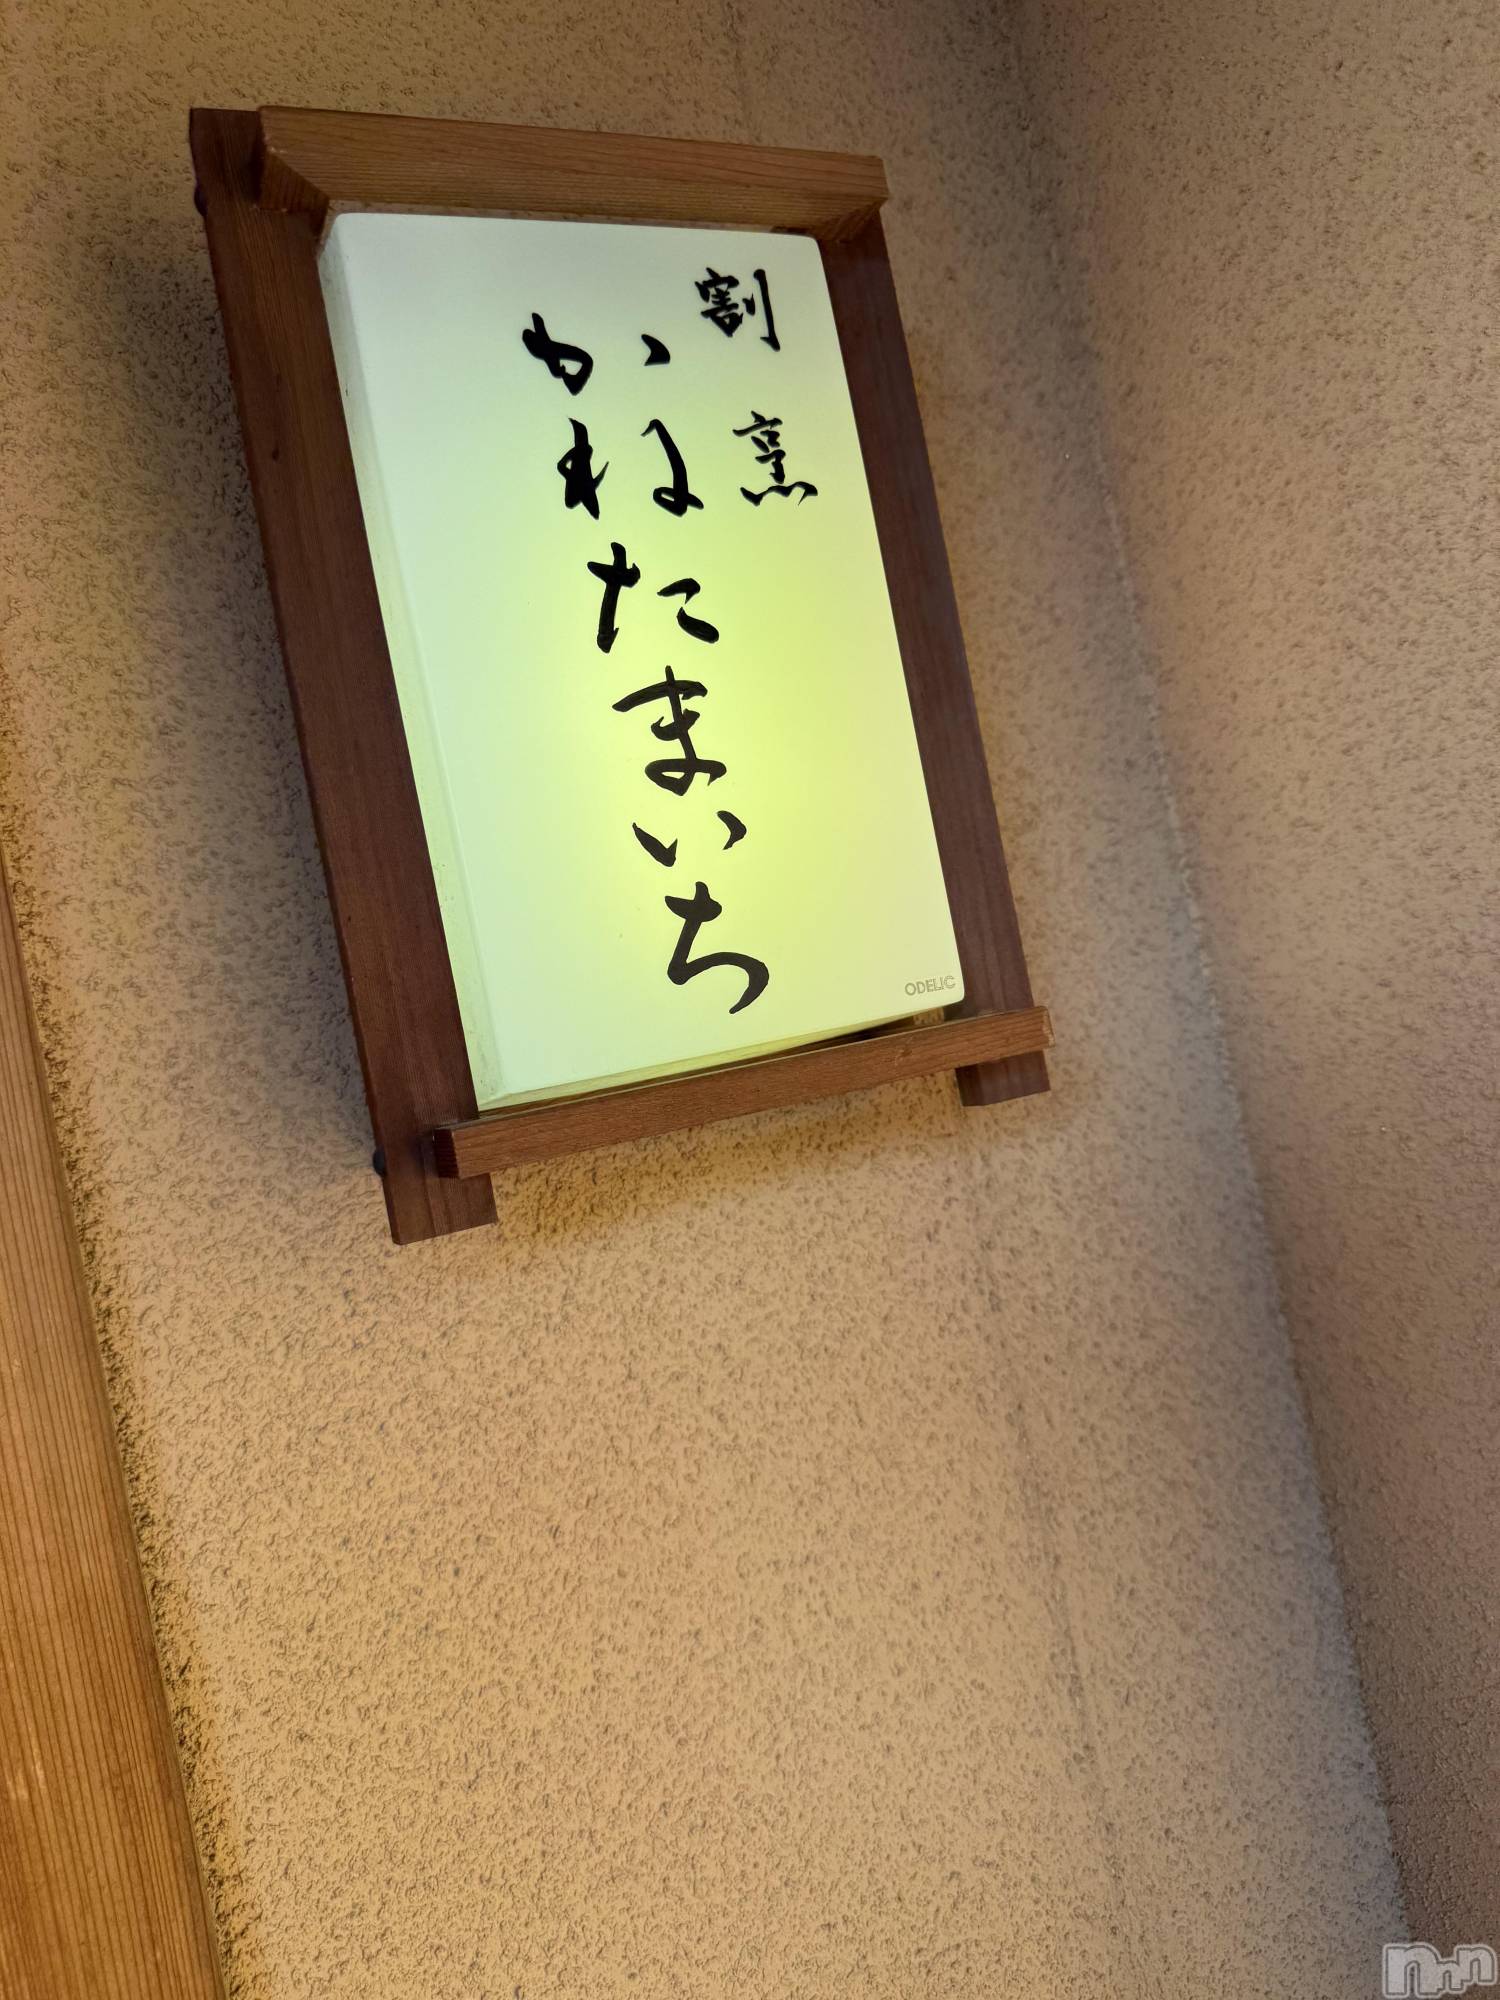 割烹
かねたまいち
ODELIC
nnn